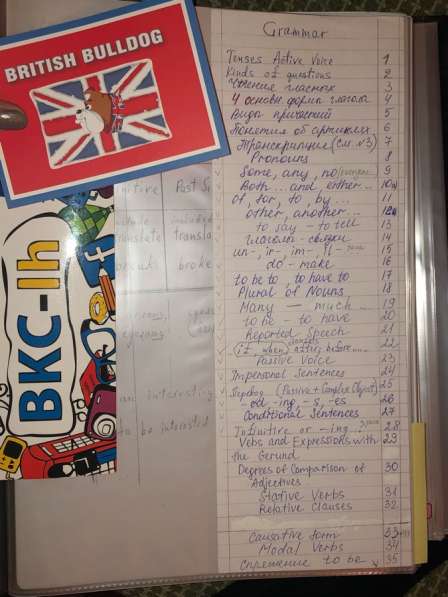 BRITISH BULLDOG
BKC-Ih
Grammar
Tenses Active Voice 1
Kinds of questions 2
Чтение гласных 3
4 основн. форма глагола 4
Виды причастий 5
Понятия об артиклях 6
Транскрипция (См. №3) 7
Pronouns 8
Some, any, no 9
Both... and either... 10
of, for, to, by... 11
other, another... 12
to say - to tell 13
глаголы-связки 14
un-, ir-, im-, il- 15
do - make 16
to be to, to have to 17
Plural of Nouns 18
Many — much... 19
to be - to have 20
Reported Speech 21
(if, when) after, before... 22
Passive Voice 23
Impersonal Sentences 24
(Passive + Complex Object) 25
-ed, -ing, -s, -es 26
Conditional Sentences 27
Infinitive or -ing? 28
Vebs and Expressions with 29
the Gerund
Degrees of Comparison of 30
Adjectives
Stative Verbs 31
Relative Clauses 32
Causative form 33
Modal Verbs 34
Спряжение to be 35
nitive Past S
translate transla
broke
an interesting
to be interested